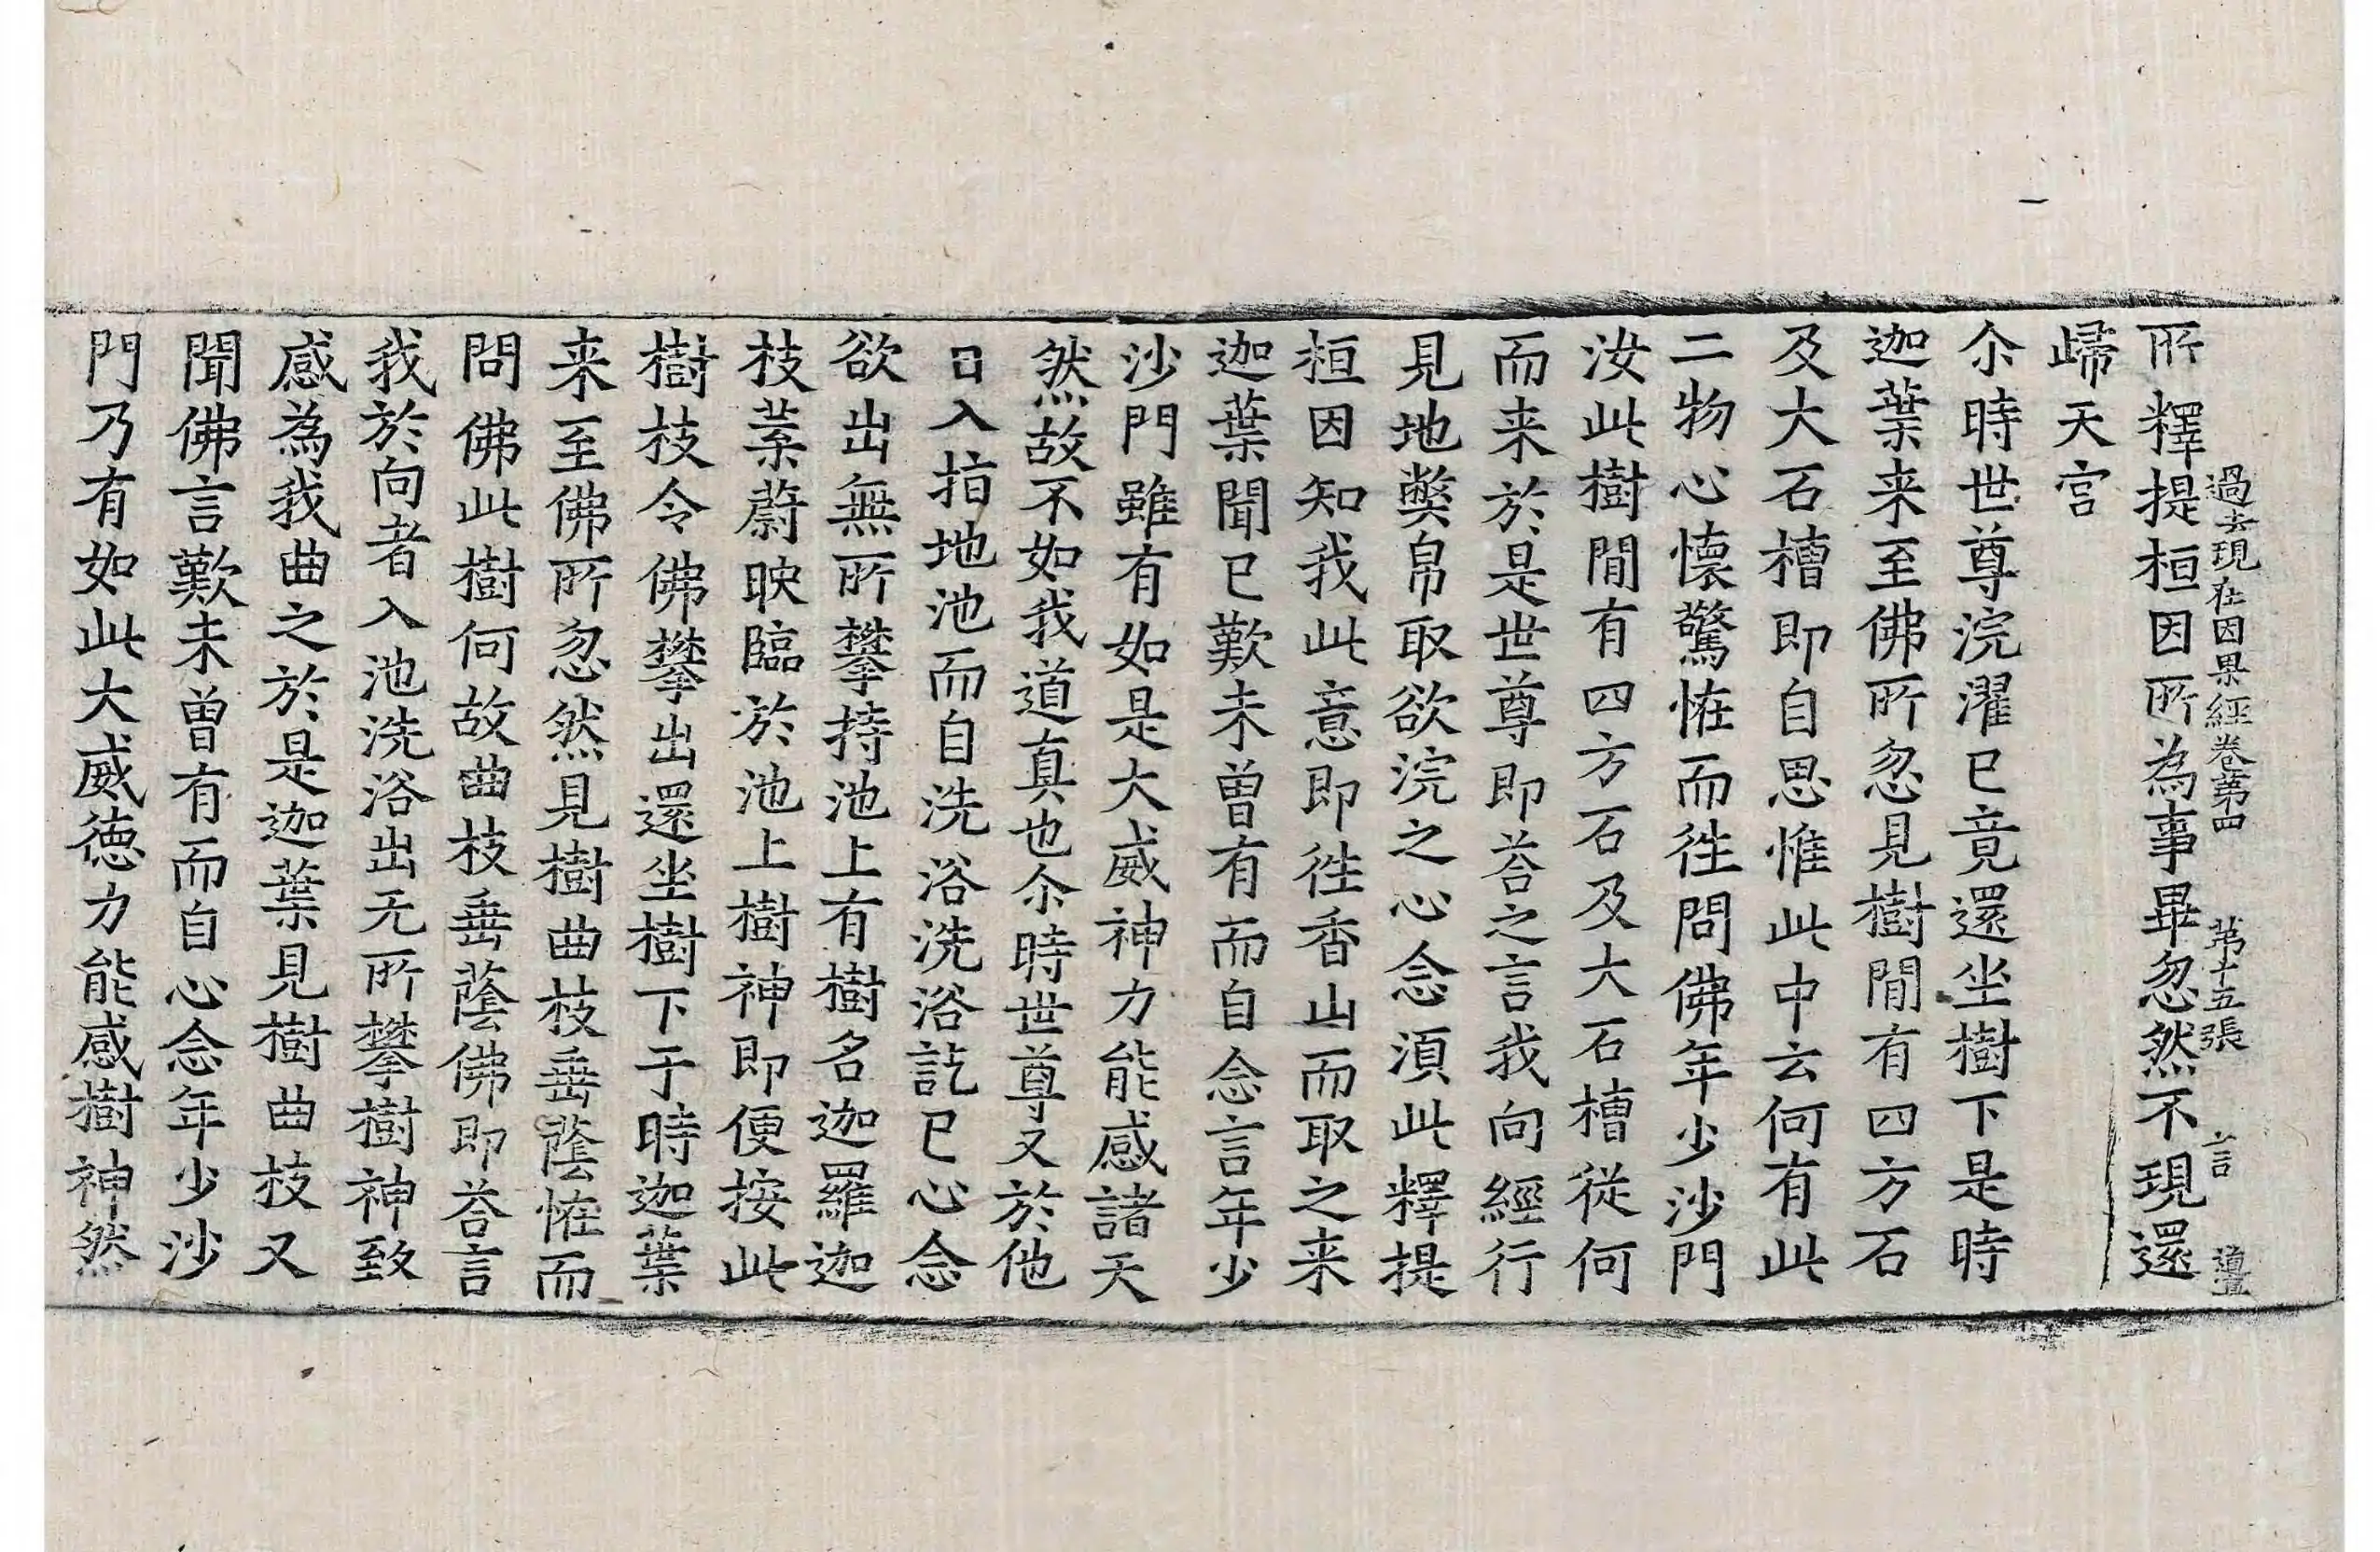 過去現在因果經卷第四　第十五張　言
所釋提桓因所為事畢忽然不現還
歸天宮
尒時世尊浣濯已竟還坐樹下是時
迦葉来至佛所忽見樹閒有四方石
及大石槽即自思惟此中云何有此
二物心懷驚恠而徃問佛年少沙門
汝此樹閒有四方石及大石槽從何
而来於是世尊即荅之言我向經行
見地弊帛取欲浣之心念須此釋提
桓因知我此意即徃香山而取之来
迦葉聞已歎未曾有而自念言年少
沙門雖有如是大威神力能感諸天
然故不如我道真也尒時世尊又於他
日入指地池而自洗浴洗浴訖已心念
欲出無所攀持池上有樹名迦羅迦
枝葉蔚映臨於池上樹神即便按此
樹枝令佛攀出還坐樹下于時迦葉
来至佛所忽然見樹曲枝垂蔭恠而
問佛此樹何故曲枝垂蔭佛即荅言
我於向者入池洗浴出无所攀樹神致
感為我曲之於是迦葉見樹曲枝又
聞佛言歎未曾有而自心念年少沙
門乃有如此大威德力能感樹神然